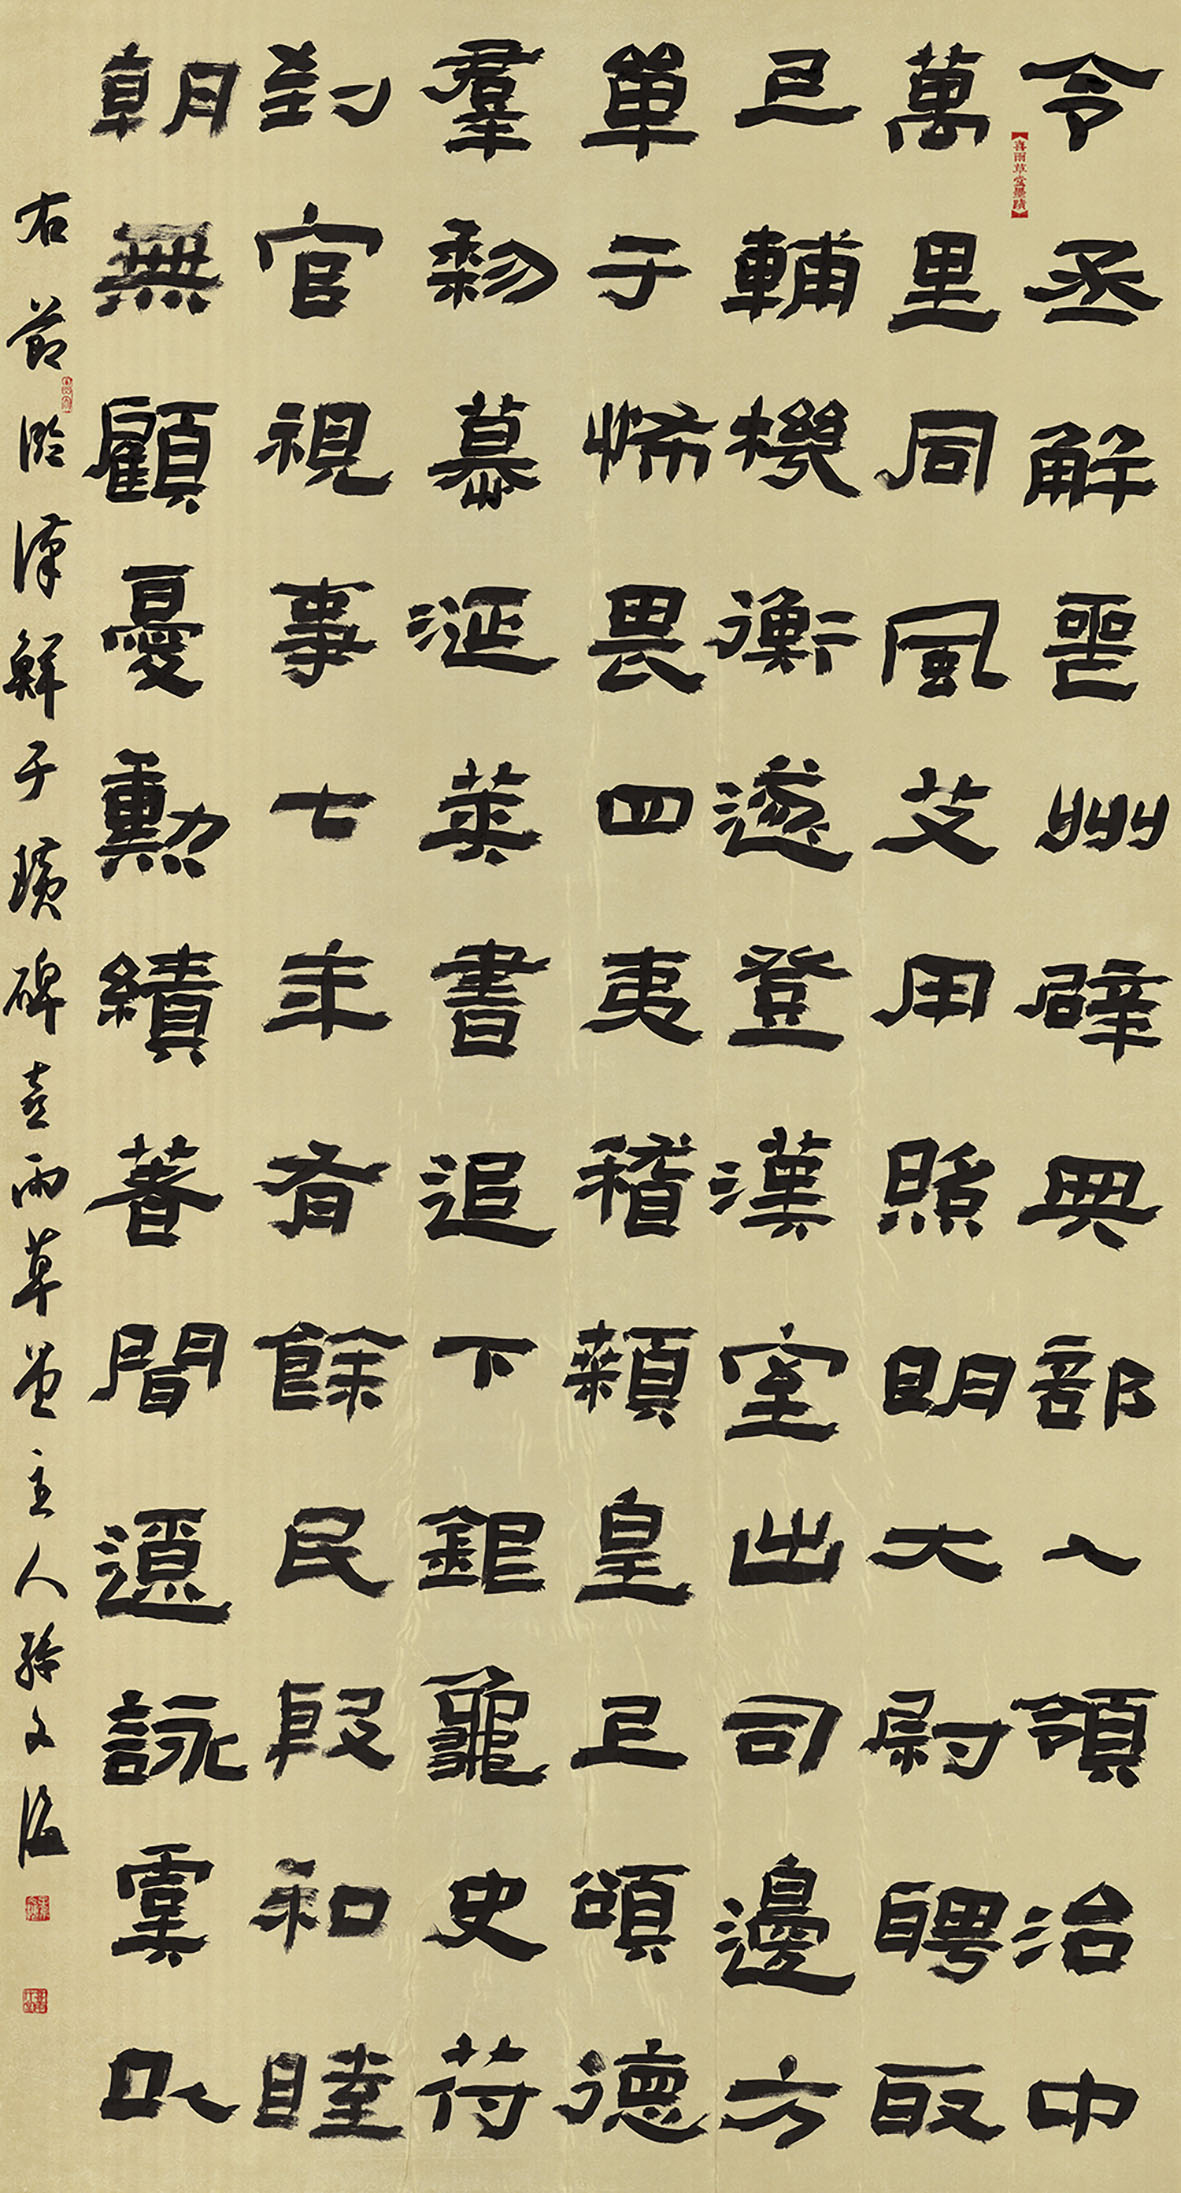 令丞解喪州辟典部入領治中
萬里同風艾用照明大尉聘取
輔機衡遂登漢室出司邊方
單于怖畏四夷稽顙皇頌德
羣黎慕涎策書追下銀龜史符
到官視事七年有餘民殷和睦
朝無顧憂勳績著聞詠虞以
右節臨漢鮮于璜碑喜雨草堂主人文
喜雨草堂墨蹟